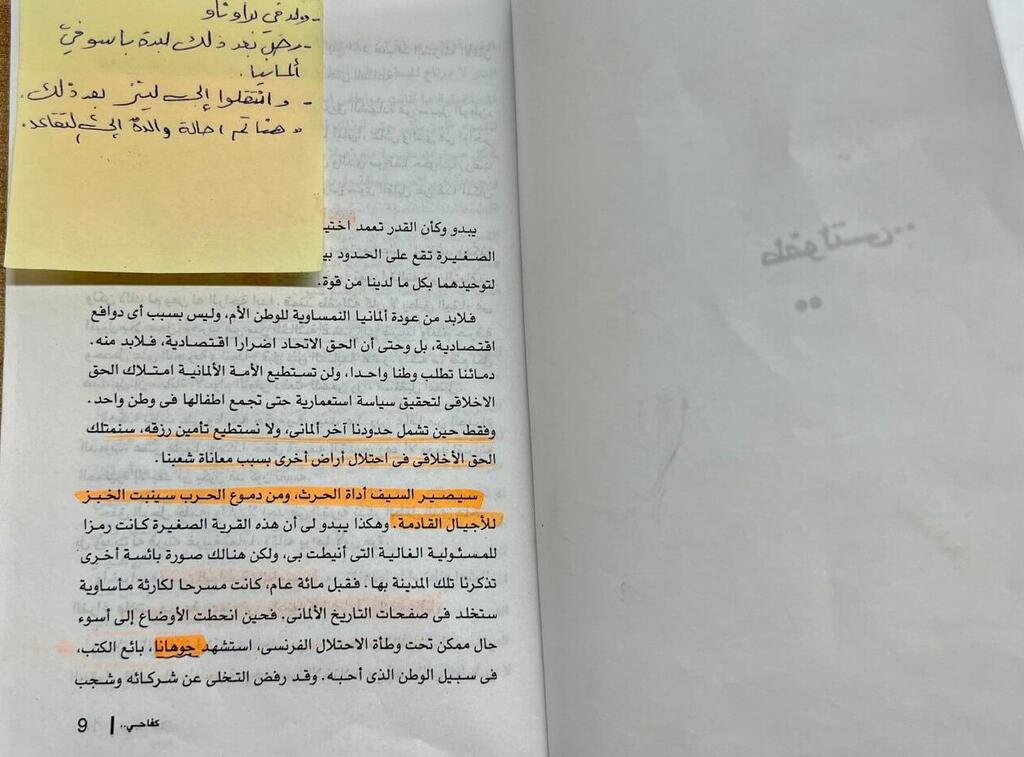 - ولد في براوناو
- رحل بعد ذلك لبدة باسو في
ألمانيا.
- وانتقلوا إلى لينز بعد ذلك.
* هنا تم احالة والده إلى لتقاعد.
يبدو وكأن القدر تعمد
الصغيرة تقع على الحدود
لتوحيدهما بكل ما لدينا من قوة.
فلابد من عودة ألمانيا النمساوية للوطن الأم، وليس بسبب أى دوافع
اقتصادية، بل وحتى أن الحق الاتحاد اضرارا اقتصادية، فلابد منه.
دمائنا تطلب وطنا واحدا، ولن تستطيع الأمة الألمانية امتلاك الحق
الاخلاقى لتحقيق سياسة استعمارية حتى تجمع اطفالها فى وطن واحد.
وفقط حين تشمل حدودنا آخر ألمانى، ولا نستطيع تأمين رزقه، سنمتلك
الحق الأخلاقى فى احتلال أراض أخرى بسبب معاناة شعبنا.
سيصير السيف أداة الحرث، ومن دموع الحرب سينبت الخبز
للأجيال القادمة. وهكذا يبدو لى أن هذه القرية الصغيرة كانت رمزا
للمسئولية الغالية التى أنيطت بى، ولكن هنالك صورة بائسة أخرى
تذكرنا تلك المدينة بها. فقبل مائة عام، كانت مسرحا لكارثة مأساوية
ستخلد فى صفحات التاريخ الألمانى. فحين انحطت الأوضاع إلى أسوء
حال ممكن تحت وطأة الاحتلال الفرنسى، استشهد جوهانا، بائع الكتب،
فى سبيل الوطن الذى أحبه. وقد رفض التخلى عن شركائه وشجب
كفاحي.. | 9